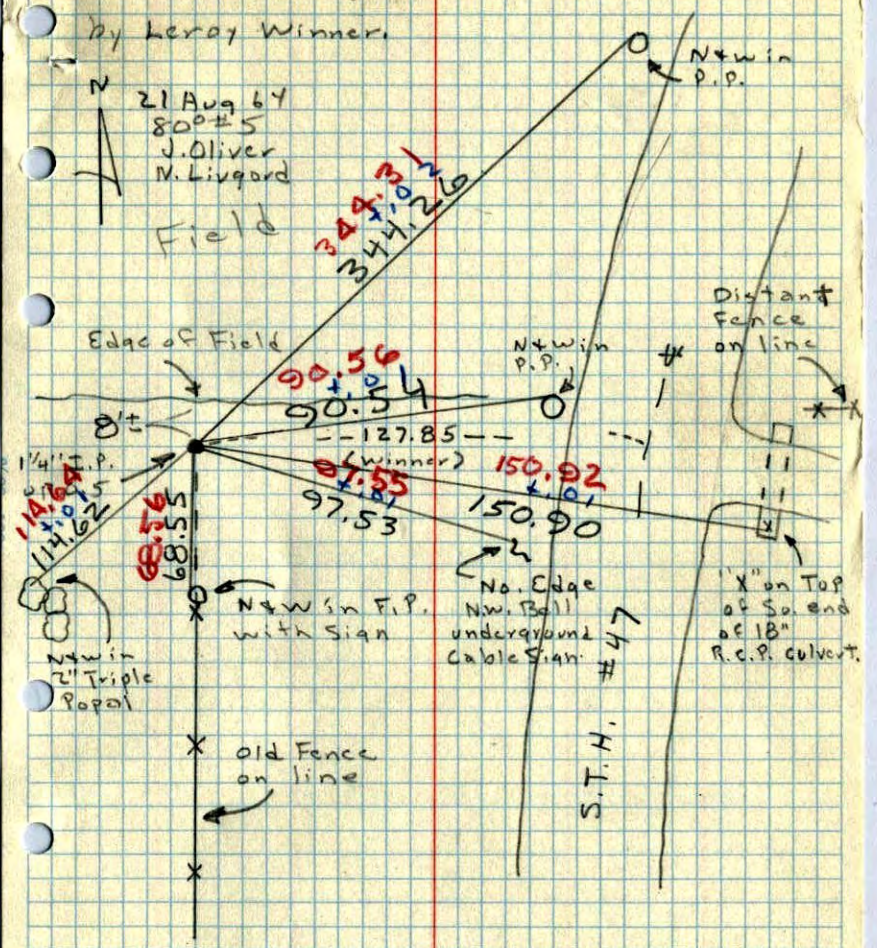 by Leroy Winner.
N
21 Aug 64
80° #5
J. Oliver
N. Livgord
Field
N&W in
P.P.
344.31
+.02
344.26
Distant
Fence
on line
Edge of Field
N&W in
P.P.
90.56
+.01
90.54
8'±
--127.85--
(Winner)
1¼" I.P.
97.55
+.01
97.53
150.92
+.01
150.90
114.64
+.01
114.62
68.56
68.55
N&W in F.P.
with Sign
No. Edge
N.W. Bell
underground
Cable Sign.
"X" on Top
of So. end
of 18"
R.C.P. culvert.
N&W in
2" Triple
Popal
S.T.H. #47
Old Fence
on line